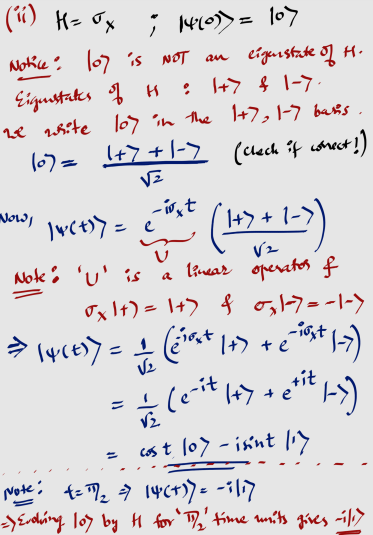 (ii) H = σₓ ; |ψ(0)⟩ = |0⟩
Notice: |0⟩ is NOT an eigenstate of H.
Eigenstates of H : |+⟩ & |−⟩.
we write |0⟩ in the |+⟩, |−⟩ basis.
|0⟩ = (|+⟩ + |−⟩)/√2 (check if correct!)
Now, |ψ(t)⟩ = e^{-iσₓt} ( (|+⟩ + |−⟩)/√2 )
U
Note: 'U' is a linear operator &
σₓ|+⟩ = |+⟩ & σₓ|−⟩ = −|−⟩
⇒ |ψ(t)⟩ = 1/√2 (e^{-iσₓt} |+⟩ + e^{-iσₓt} |−⟩)
= 1/√2 (e^{-it} |+⟩ + e^{+it} |−⟩)
= cos t |0⟩ − i sin t |1⟩
Note: t = π/2 ⇒ |ψ(t)⟩ = −i|1⟩
⇒ Evolving |0⟩ by H for 'π/2' time units gives −i|1⟩